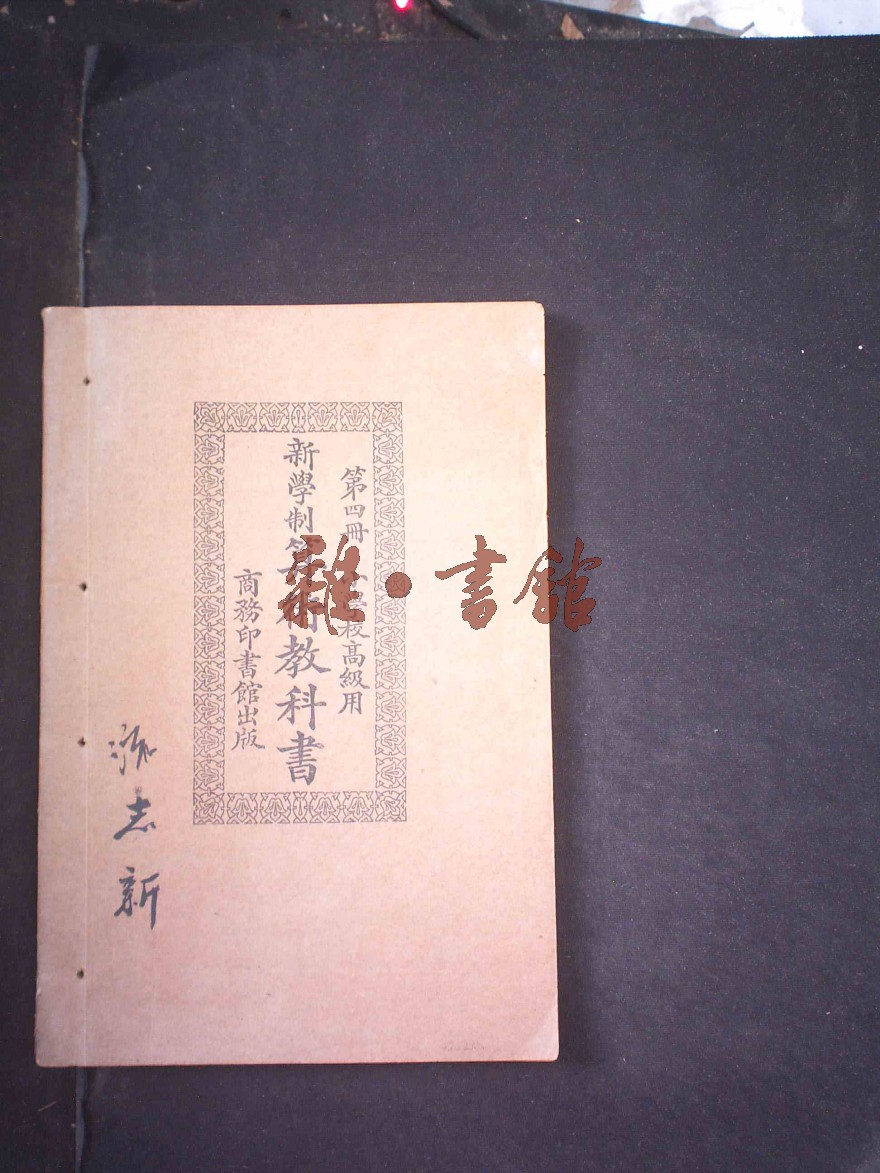 第四冊 小學校高級用
新學制算術教科書
商務印書館出版
志新
雜·書館